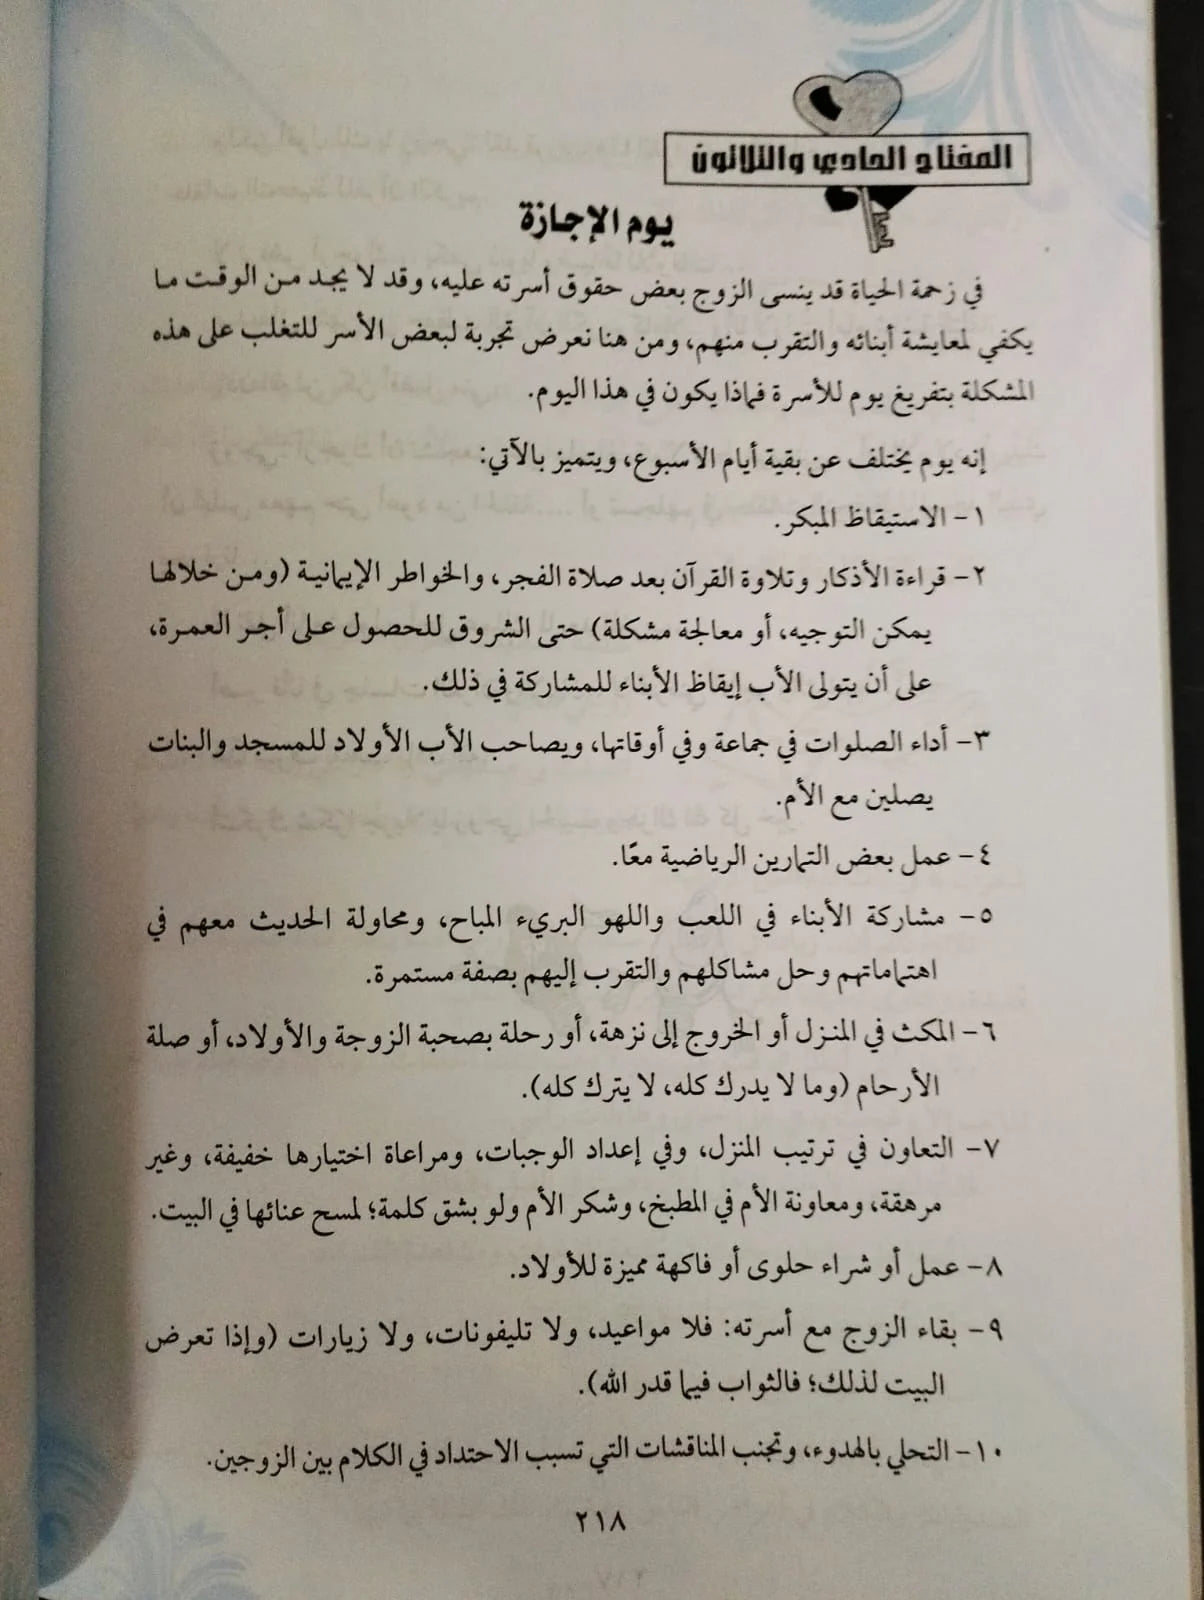 المفتاح الحادي والثلاثون
يوم الإجازة
في زحمة الحياة قد ينسى الزوج بعض حقوق أسرته عليه، وقد لا يجد من الوقت ما
يكفي لمعايشة أبنائه والتقرب منهم، ومن هنا نعرض تجربة لبعض الأسر للتغلب على هذه
المشكلة بتفريغ يوم للأسرة فماذا يكون في هذا اليوم.
إنه يوم يختلف عن بقية أيام الأسبوع، ويتميز بالآتي:
١- الاستيقاظ المبكر.
٢- قراءة الأذكار وتلاوة القرآن بعد صلاة الفجر، والخواطر الإيمانية (ومن خلالها
يمكن التوجيه، أو معالجة مشكلة) حتى الشروق للحصول على أجر العمرة،
على أن يتولى الأب إيقاظ الأبناء للمشاركة في ذلك.
٣- أداء الصلوات في جماعة وفي أوقاتها، ويصاحب الأب الأولاد للمسجد والبنات
يصلين مع الأم.
٤- عمل بعض التمارين الرياضية معًا.
٥- مشاركة الأبناء في اللعب واللهو البريء المباح، ومحاولة الحديث معهم في
اهتماماتهم وحل مشاكلهم والتقرب إليهم بصفة مستمرة.
٦- المكث في المنزل أو الخروج إلى نزهة، أو رحلة بصحبة الزوجة والأولاد، أو صلة
الأرحام (وما لا يدرك كله، لا يترك كله).
٧- التعاون في ترتيب المنزل، وفي إعداد الوجبات، ومراعاة اختيارها خفيفة، وغير
مرهقة، ومعاونة الأم في المطبخ، وشكر الأم ولو بشق كلمة؛ لمسح عنائها في البيت.
٨- عمل أو شراء حلوى أو فاكهة مميزة للأولاد.
٩- بقاء الزوج مع أسرته: فلا مواعيد، ولا تليفونات، ولا زيارات (وإذا تعرض
البيت لذلك؛ فالثواب فيما قدر الله).
١٠- التحلي بالهدوء، وتجنب المناقشات التي تسبب الاحتداد في الكلام بين الزوجين.
٢١٨